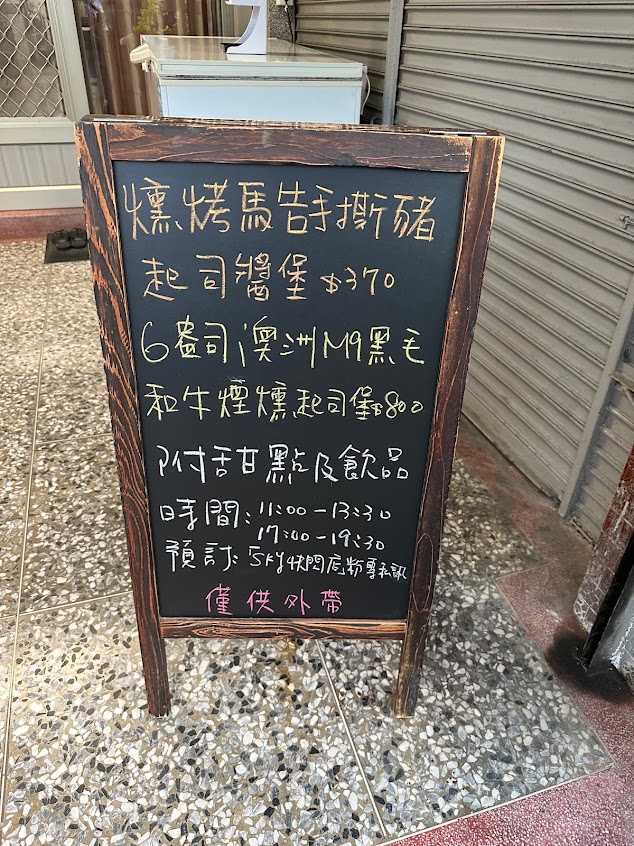 燻烤馬告手撕豬
起司醬堡 $370
6盎司澳洲M9黑毛
和牛煙燻起司堡$800
附甜點及飲品
時間:11:00-13:30
17:00-19:30
預訂: 快閃店粉專私訊
僅供外帶